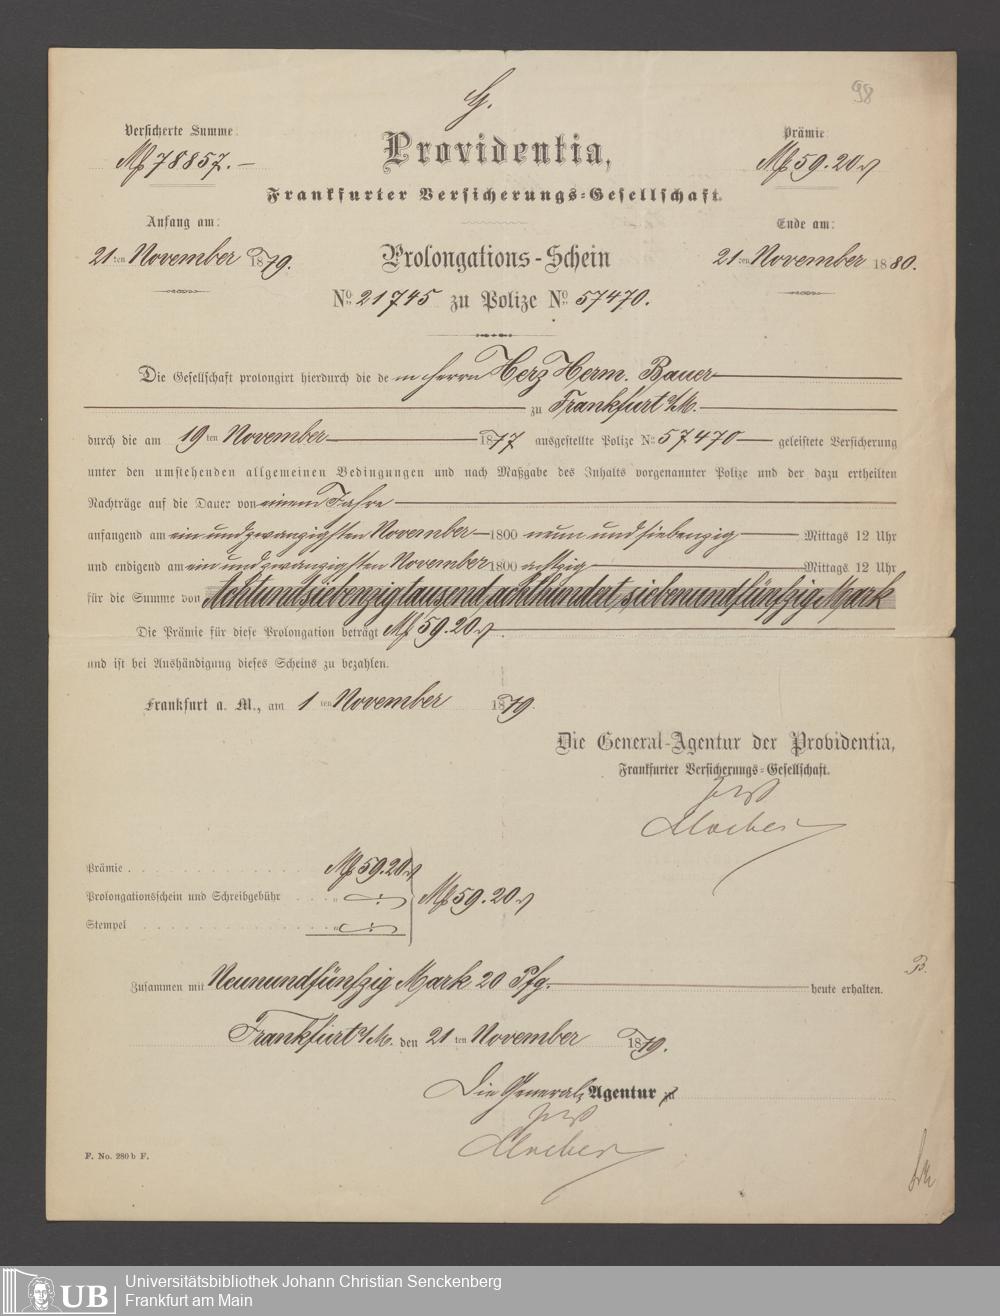 G.
98
Versicherte Summe:
Mk 78857.—
Providentia,
Prämie
Mk 59.20
Frankfurter Versicherungs-Gesellschaft.
Anfang am:
Ende am:
21ten November 1879.
Prolongations-Schein
21ten November 1880.
No. 21745 zu Polize No. 57470.
Die Gesellschaft prolongirt hierdurch die dem Herrn Herz Herm. Bauer
zu Frankfurt a/M.
durch die am 19ten November 1877 ausgestellte Polize No. 57470 geleistete Versicherung
unter den umstehenden allgemeinen Bedingungen und nach Maßgabe des Inhalts vorgenannter Polize und der dazu ertheilten
Nachträge auf die Dauer von einem Jahre
anfangend am ein und zwanzigsten November 1800 neun und siebenzig Mittags 12 Uhr
und endigend am ein und zwanzigsten November 1800 achtzig Mittags 12 Uhr
für die Summe von Achtundsiebenzigtausend, achthundert, siebenundfünfzig Mark
Die Prämie für diese Prolongation beträgt Mk 59.20
und ist bei Aushändigung dieses Scheins zu bezahlen.
Frankfurt a. M., am 1ten November 1879.
Die General-Agentur der Providentia,
Frankfurter Versicherungs-Gesellschaft.
Prämie . . . . . Mk 59.20
Prolongationsschein und Schreibgebühr . . . „ Mk 59.20
Stempel . . . . . „
B.
Zusammen mit Neunundfünfzig Mark 20 Pfg. heute erhalten.
Frankfurt a/M. den 21ten November 1879.
Die General-Agentur zu
F. No. 280 b F.
UB Universitätsbibliothek Johann Christian Senckenberg
Frankfurt am Main